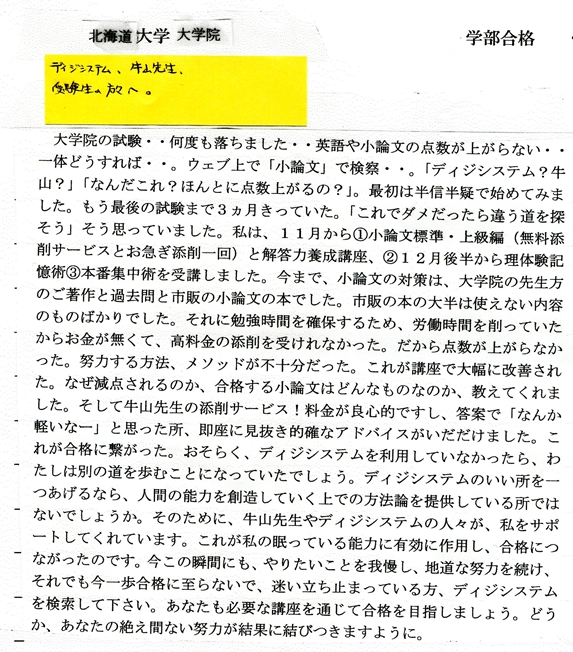 北海道大学 大学院 学部合格
ディジシステム、牛山先生、
受験生の方へ。
大学院の試験・・何度も落ちました・・英語や小論文の点数が上がらない・・
一体どうすれば・・。ウェブ上で「小論文」で検察・・。「ディジシステム？牛
山？」「なんだこれ？ほんとに点数上がるの？」。最初は半信半疑で始めてみま
した。もう最後の試験まで３ヵ月きっていた。「これでダメだったら違う道を探
そう」そう思っていました。私は、１１月から①小論文標準・上級編（無料添
削サービスとお急ぎ添削一回）と解答力養成講座、②１２月後半から理体験記
憶術③本番集中術を受講しました。今まで、小論文の対策は、大学院の先生方
のご著作と過去問と市販の小論文の本でした。市販の本の大半は使えない内容
のものばかりでした。それに勉強時間を確保するため、労働時間を削っていた
からお金が無くて、高料金の添削を受けれなかった。だから点数が上がらなか
った。努力する方法、メソッドが不十分だった。これが講座で大幅に改善され
た。なぜ減点されるのか、合格する小論文はどんなものなのか、教えてくれま
した。そして牛山先生の添削サービス！料金が良心的ですし、答案で「なんか
軽いなー」と思った所、即座に見抜き的確なアドバイスがいだだけました。こ
れが合格に繋がった。おそらく、ディジシステムを利用していなかったら、わ
たしは別の道を歩むことになっていたでしょう。ディジシステムのいい所を一
つあげるなら、人間の能力を創造していく上での方法論を提供している所では
ないでしょうか。そのために、牛山先生やディジシステムの人々が、私をサポ
ートしてくれています。これが私の眠っている能力に有効に作用し、合格につ
ながったのです。今この瞬間にも、やりたいことを我慢し、地道な努力を続け、
それでも今一歩合格に至らないで、迷い立ち止まっている方、ディジシステム
を検索して下さい。あなたも必要な講座を通じて合格を目指しましょう。どう
か、あなたの絶え間ない努力が結果に結びつきますように。